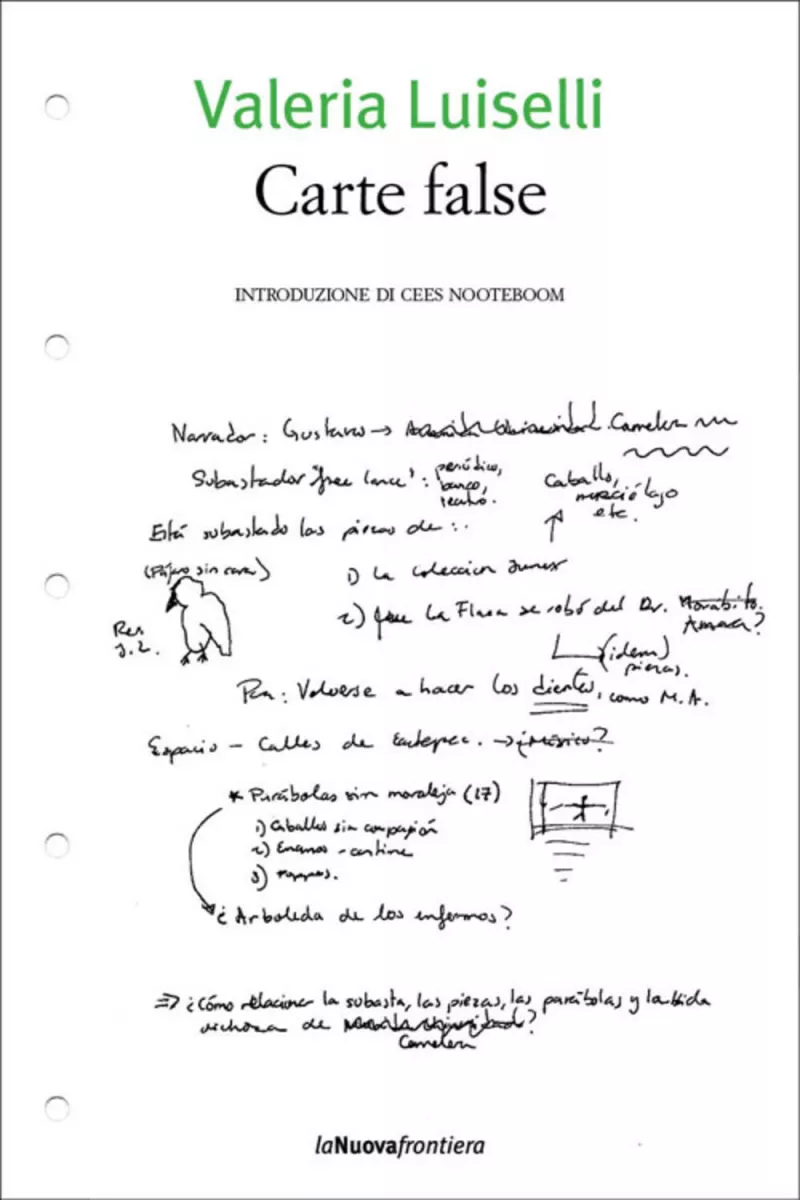 Valeria Luiselli
Carte false
INTRODUZIONE DI CEES NOOTEBOOM
Narrador: Gustavo →
Subastador "free lance": periódico,
banco,
teatro.
Caballo,
murciélago
etc.
Está subastado las piezas de :.
(Pájaro sin cara)
1) La coleccion
2) que La Flaca se robó del Dr. Morabito.
(idem)
piezas.
Para: Volverse a hacer los dientes, como M.A.
Espacio – Calles de Ecatepec. → ¿México?
* Parábolas sin moraleja (17)
1) Caballos sin compasión
2) Enanos -
3)
¿Arboleda de los enfermos?
⇒ ¿Cómo relacionar la subasta, las piezas, las parábolas y la
de ?
laNuovafrontiera